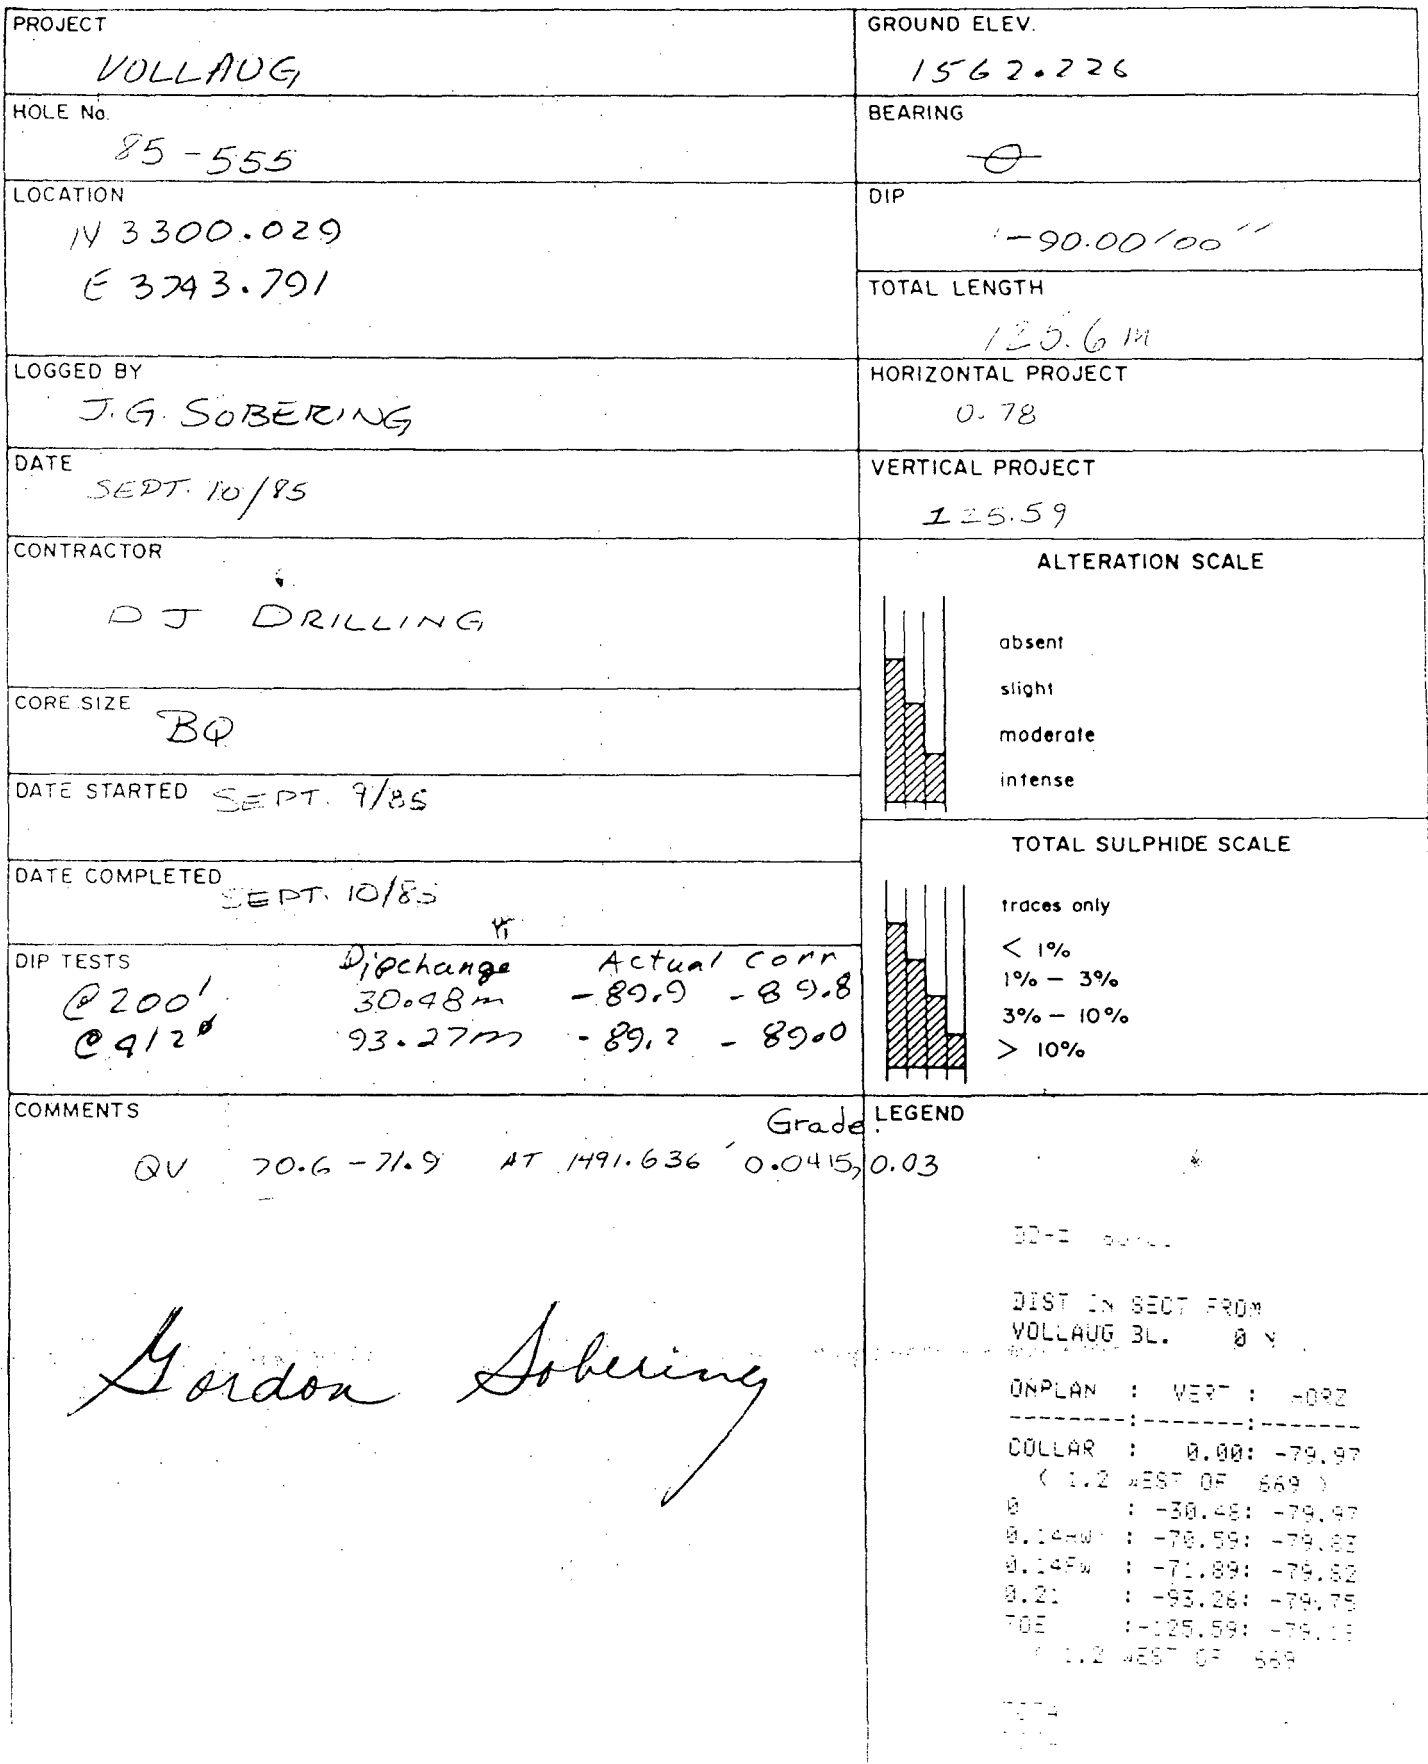 PROJECT
VOLLAUG
HOLE No.
85-555
LOCATION
N 3300.029
E 3743.791
LOGGED BY
J.G. SOBERING
DATE
SEPT. 10/85
CONTRACTOR
DJ DRILLING
CORE SIZE
BQ
DATE STARTED SEPT. 9/85
DATE COMPLETED SEPT. 10/85
DIP TESTS Dipchange Actual Corr
@ 200' 30.48m -89.9 -89.8
@ 412' 93.27m -89.2 -89.0
GROUND ELEV.
1562.226
BEARING
DIP
-90.00'00''
TOTAL LENGTH
125.6 m
HORIZONTAL PROJECT
0.78
VERTICAL PROJECT
125.59
ALTERATION SCALE
absent
slight
moderate
intense
TOTAL SULPHIDE SCALE
traces only
< 1%
1% – 3%
3% – 10%
> 10%
COMMENTS
Grade
QV 70.6-71.9 AT 1491.636 0.0415, 0.03
Gordon Sobering
LEGEND
DIST IN SECT FROM
VOLLAUG BL. 0 N
ONPLAN : VERT : HORZ
--------:-------:-------
COLLAR : 0.00: -79.97
( 1.2 WEST OF 669 )
0 : -30.48: -79.97
0.14HW : -70.59: -79.83
0.14FW : -71.89: -79.82
0.21 : -93.26: -79.75
TOE :-125.59: -79.
( 1.2 WEST OF 669